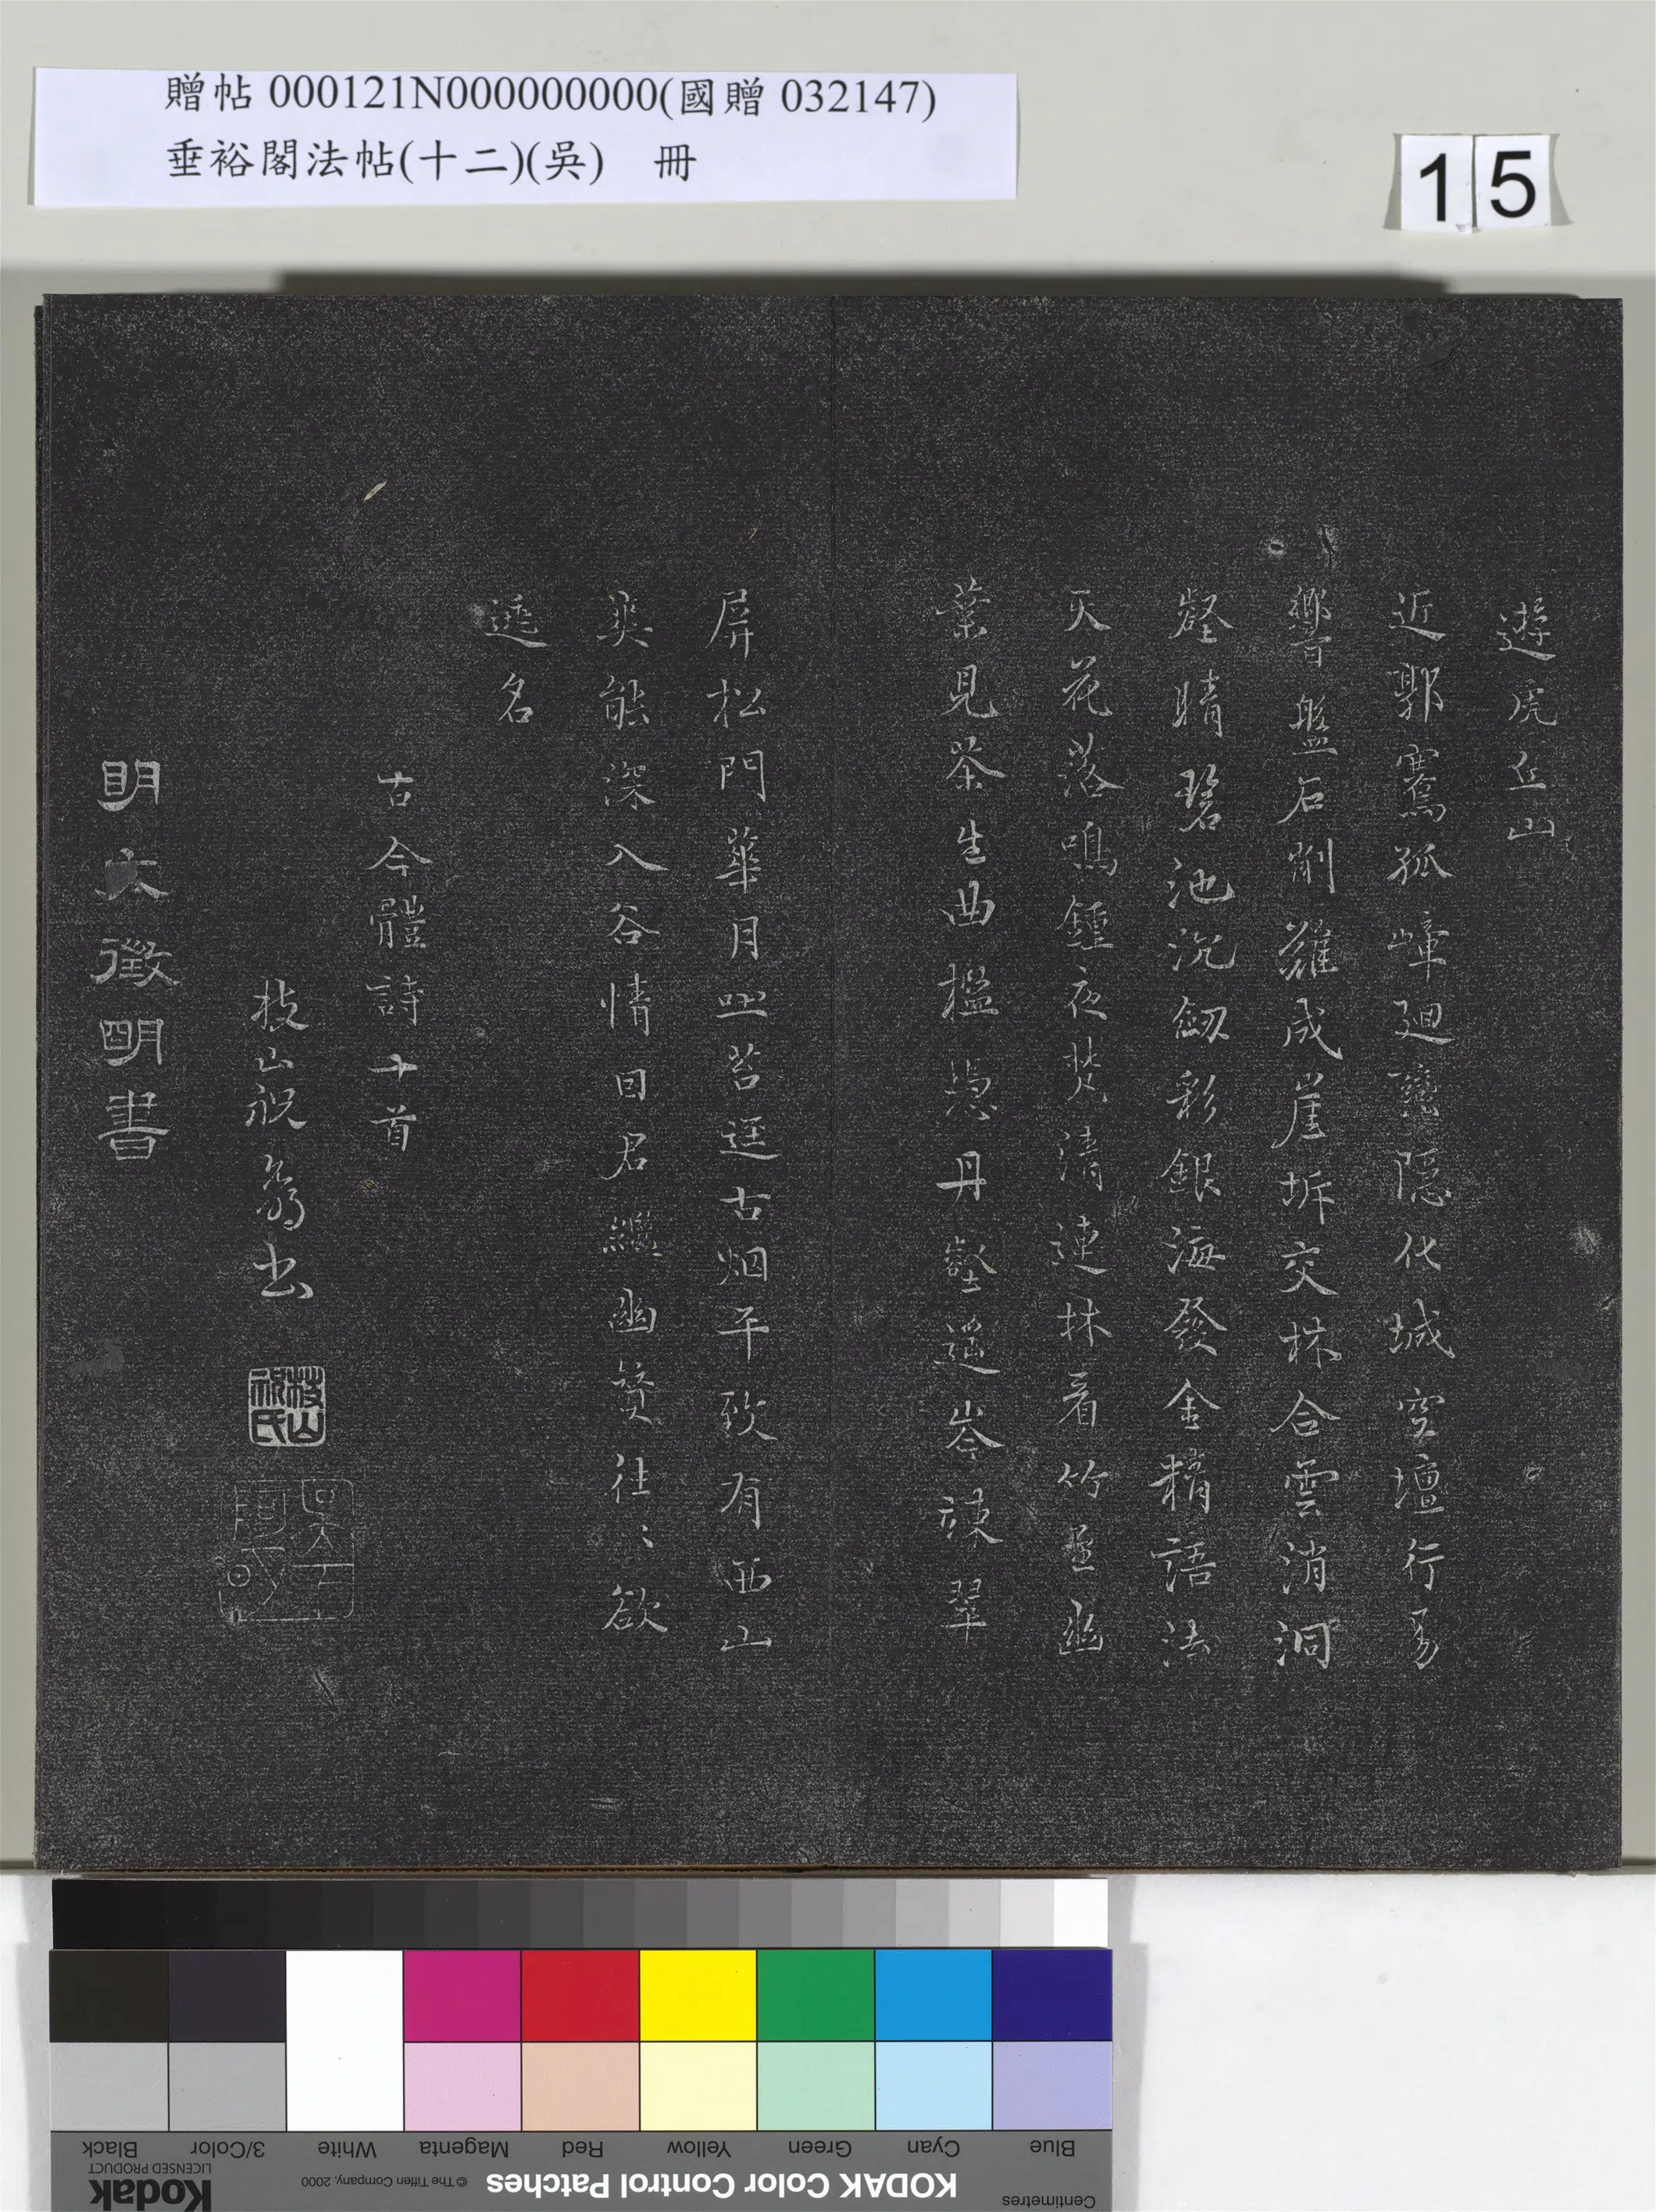 贈帖 000121N000000000(國贈 032147)
垂裕閣法帖(十二)(吳) 冊
15
遊虎丘山
近郭騫孤嶂迴巒隱化城空壇行易
響盤石削難成崖坼交株合雲消洞
壑晴碧池沉劔彩銀海發金精語法
天花落鳴鍾夜梵清連林看竹歪幽
葉見茶生曲檻憑丹壑遥岑竦翠
屏松門華月出苔逕古烟平致有西山
爽能深入谷情日君繼幽賛往〻欲
逃名
古今體詩十首
枝山祝翁書
枝山祝氏
明文徵明書
Black
3/Color
White
Magenta
Red
Yellow
Green
Cyan
Blue
Kodak
LICENSED PRODUCT
© The Tiffen Company, 2000
KODAK Color Control Patches
Centimetres